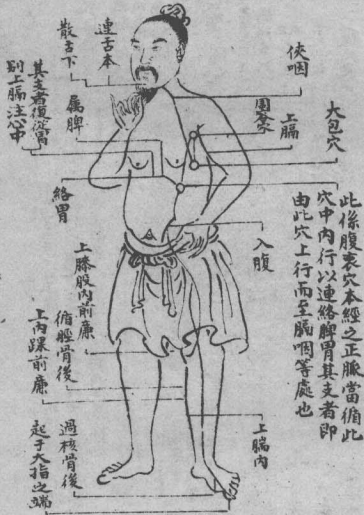 俠咽
大包穴
周榮穴
上膈
此係腹哀穴本經之正脈當循此
穴中內行以連絡脾胃其支者即
由此穴上行而至膈咽等處也
入腹
上腨內
連舌本
散舌下
属脾
其支者復從胃
別上膈注心中
絡胃
上膝股內前廉
循脛骨後
上內踝前廉
過核骨後
起于大指之端